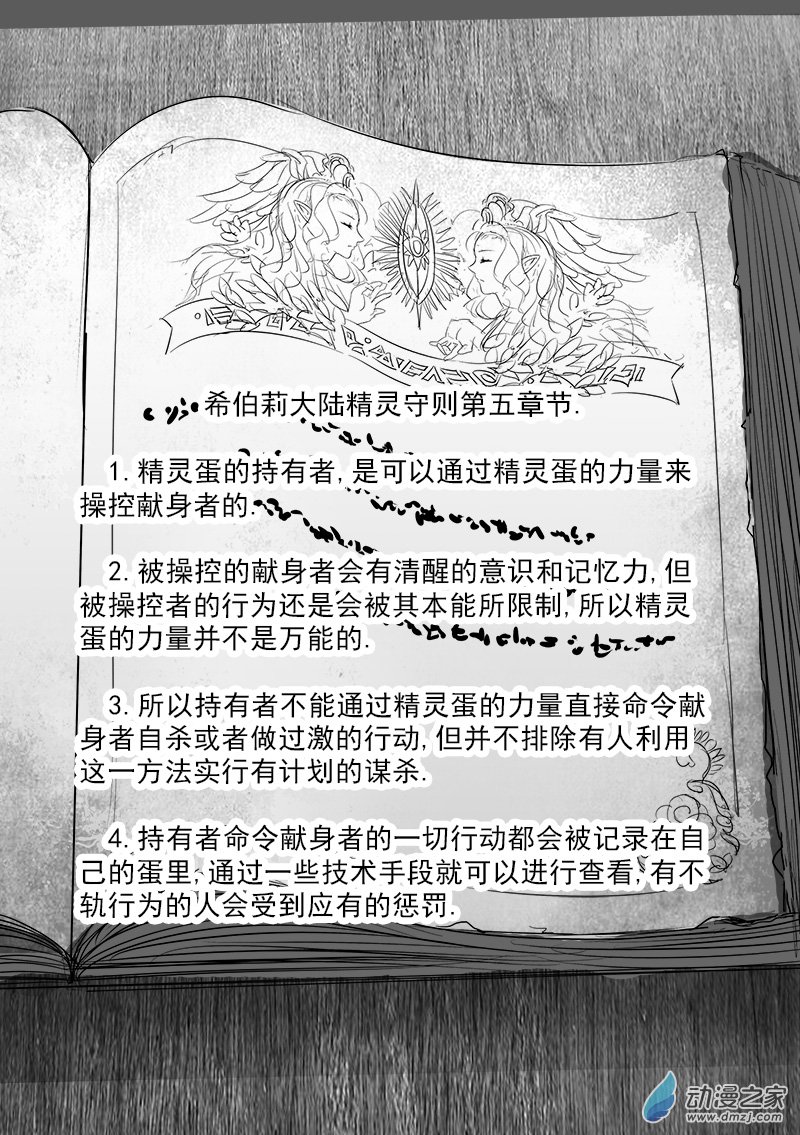 希伯莉大陆精灵守则第五章节.
1.精灵蛋的持有者,是可以通过精灵蛋的力量来
操控献身者的.
2.被操控的献身者会有清醒的意识和记忆力,但
被操控者的行为还是会被其本能所限制,所以精灵
蛋的力量并不是万能的.
3.所以持有者不能通过精灵蛋的力量直接命令献
身者自杀或者做过激的行动,但并不排除有人利用
这一方法实行有计划的谋杀.
4.持有者命令献身者的一切行动都会被记录在自
己的蛋里,通过一些技术手段就可以进行查看,有不
轨行为的人会受到应有的惩罚.
动漫之家
www.dmzj.com